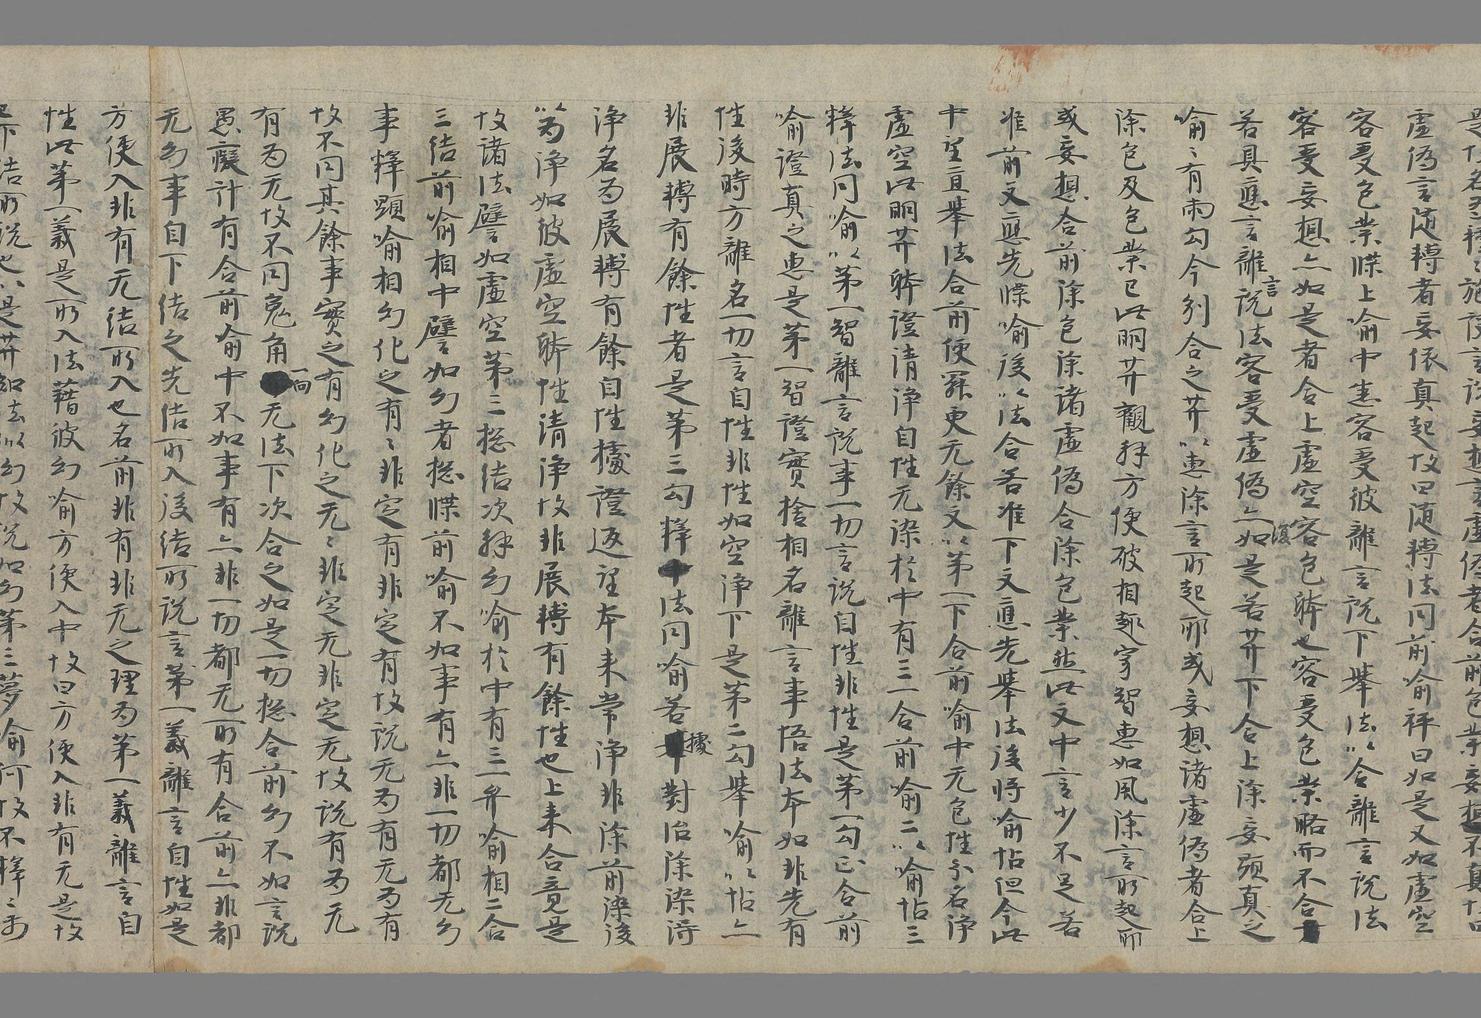 虛偽言随轉者妄依真起故曰随轉法同前喻秤曰如是又如虛空
容受色業牒上喻中悉容受彼離言說下舉法以合離言說法
容受妄想亦如是者合上虛空容色躰也容受色業略而不合
若具應言離言說法容受虛偽亦復如是若菩薩下合上除妄顯真之
喻喻有兩句今別合之菩薩以惠除言所起耶或妄想諸虛偽者合上
除色及色業已此明菩薩觀拜方便破相趣寂智惠如風除言所起耶
或妄想合前除色除諸虛偽合除色業然此文中言少不足若
准前文應先牒喻後以法合若准下文應先舉法後將喻怗但今此
中望直舉法合前便罷更无餘文以第一下合前喻中无色性尒名淨
虛空此明菩薩躰證清淨自性无染於中有三一合前喻二以喻怗三
釋法同喻以第一智離言說事一切言說自性非性是第一句正合前
喻證真之惠是第一智證實捨相名離言事悟法本如非先有
性後時方離名一切言自性非性如空淨下是第二句舉喻以怗亦
非展轉有餘性者是第三句釋法同喻若據對治除染得
淨名為展轉有餘自性據證返望本来常淨非除前染後
為淨如彼虛空躰性清淨故非展轉有餘性也上来合竟是
故諸法譬如虛空第三捴結次拜幻喻於中有三一弁喻相二合
三結前喻相中譬如幻者捴牒前喻不如事有亦非一切都无幻
事釋顯喻相幻化之有有非定有非定有故說无為有无為有
故不同其餘事實之有幻化之无无非定无非定无故說有為无
有為无故不同兔角一向无法下次合之如是一切捴合前幻不如言說
愚癡計有合前喻中不如事有亦非一切都无所有合前亦非都
无幻事自下結之先結所入後結所說言第一義離言自性如是
方便入非有无結所入也名前非有非无之理為第一義離言自
性此第一義是所入法藉彼幻喻方便入中故曰方便入非有无是故